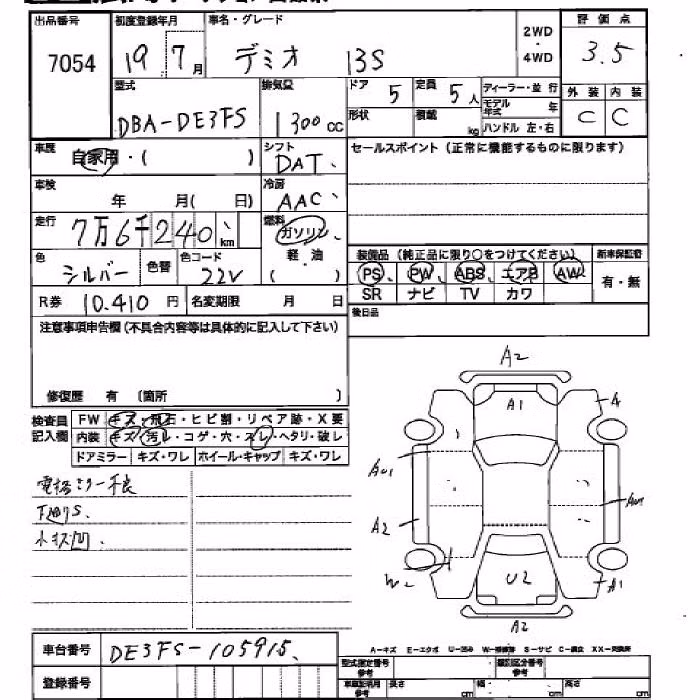 出品番号 初度登録年月 車名・グレード 2WD・4WD 評価点
7054 19 7月 デミオ 13S 3.5
型式 排気量 ドア 5 定員 5人 ディーラー・並行 外装 内装
DBA-DE3FS 1300cc 形状 積載 kg モデル年式 年 C C
ハンドル 左・右
車歴 自家用・( ) シフト DAT、 セールスポイント (正常に機能するものに限ります)
車検 年 月( 日) 冷房 AAC、
走行 7万6千240、km 燃料 ガソリン
軽・油
( )
色 シルバー 色替 色コード 22V 装備品 (純正品に限り○をつけてください) 新車保証書
PS、 PW、 ABS エアB AW 有・無
SR ナビ TV カワ
R券 10.410円 名変期限 月 日 後日品
注意事項申告欄 (不具合内容等は具体的に記入して下さい)
修復歴 有 (箇所 )
検査員記入欄 FW キズ・飛石・ヒビ割・リペア跡・X要
内装 キズ・汚レ・コゲ・穴・スレ・ヘタリ・破レ
ドアミラー キズ・ワレ ホイール・キャップ キズ・ワレ
電格ミラー不良
下廻りS.
小キズ凹、
A2
A1 A
A2
W2 U2 A1
A2
車台番号 DE3FS-105915、
登録番号
A-キズ E-エクボ U-凹み S-サビ
型式指定番号 参考 類別区分番号 参考
長さ cm 幅 cm 高さ cm